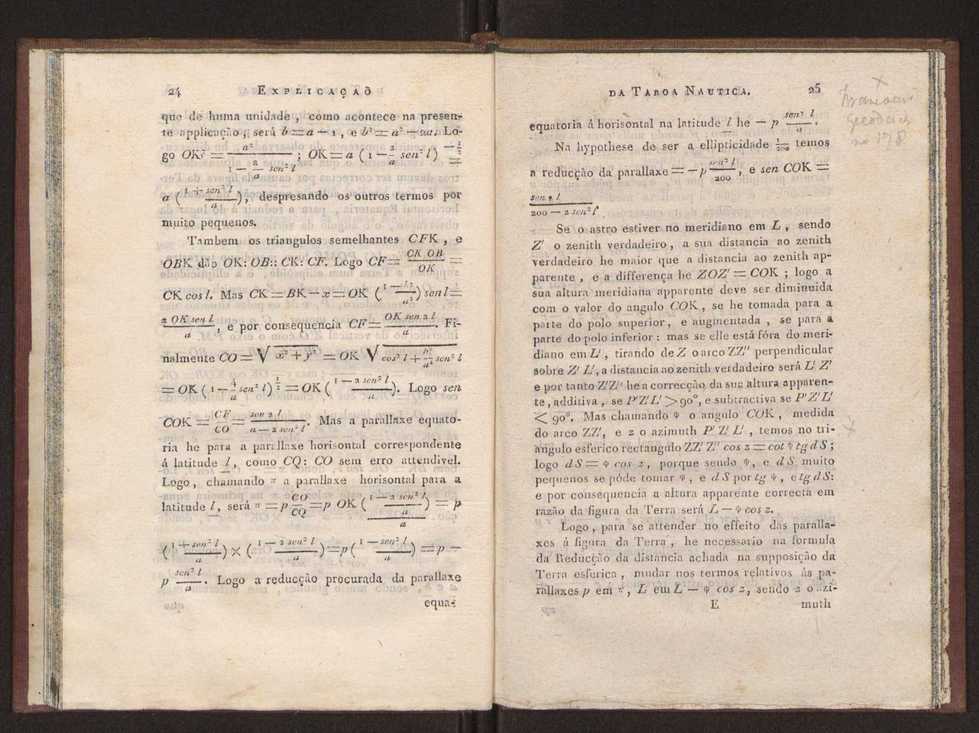 24 EXPLICAÇAÕ
que de huma unidade, como acontece na presen-
te applicação, será b = a − 1, e b² = a² − 2a. Lo-
go OK² = a² / (1 − 2/a sen² l) ; OK = a (1 − 2/a sen² l)^−½ =
a (1 + sen² l / a), despresando os outros termos por
muito pequenos.
Tambem os triangulos semelhantes CFK, e
OBK dão OK: OB:: CK: CF. Logo CF = CK. OB / OK =
CK cos l. Mas CK = BK − x = OK (1 − b²/a²) sen l =
2 OK sen l / a, e por consequencia CF = OK sen 2 l / a. Fi-
nalmente CO = √ x² + y² = OK √ cos² l + b⁴/a⁴ sen² l
= OK (1 − 4/a sen² l)^½ = OK (1 − 2 sen² l / a). Logo sen
COK = CF / CO = sen 2 l / (a − 2 sen² l). Mas a parallaxe equato-
ria he para a parallaxe horisontal correspondente
á latitude l, como CQ: CO sem erro attendivel.
Logo, chamando π a parallaxe horisontal para a
latitude l, será π = p CO / CQ = p OK (1 − 2 sen² l / a) / a = p
(1 + sen² l / a) × (1 − 2 sen² l / a) = p (1 − sen² l / a) = p −
p sen² l / a. Logo a reducção procurada da parallaxe
equa-
DA TABOA NAUTICA. 25
equatoria á horisontal na latitude l he − p sen² l / a.
Na hypothese de ser a ellipticidade 1/200 temos
a reducção da parallaxe = − p sen² l / 200, e sen COK =
sen 2 l / (200 − 2 sen² l)
Se o astro estiver no meridiano em L, sendo
Z' o zenith verdadeiro, a sua distancia ao zenith
verdadeiro he maior que a distancia ao zenith ap-
parente, e a differença he ZOZ' = COK; logo a
sua altura meridiana apparente deve ser diminuida
com o valor do angulo COK, se he tomada para a
parte do polo superior, e augmentada, se para a
parte do polo inferior: mas se elle está fóra do meri-
diano em L', tirando de Z o arco ZZ'' perpendicular
sobre Z' L', a distancia ao zenith verdadeiro será L' Z'
e por tanto Z'Z'' he a correcção da sua altura apparen-
te, additiva, se P'Z'L' > 90°, e subtractiva se P'Z'L'
< 90°. Mas chamando ψ o angulo COK, medida
do arco ZZ', e z o azimuth P'Z'L', temos no tri-
angulo esferico rectangulo ZZ'Z'' cos z = cot ψ tg dS;
logo dS = ψ cos z, porque sendo ψ, e dS muito
pequenos se póde tomar ψ, e dS por tg ψ, e tg dS:
e por consequencia a altura apparente correcta em
razão da figura da Terra será L − ψ cos z.
Logo, para se attender no effeito das paralla-
xes á figura da Terra, he necessario na formula
da Reducção da distancia achada na supposição da
Terra esferica, mudar nos termos relativos ás pa-
rallaxes p em π, L em L − ψ cos z, sendo z o azi-
E muth